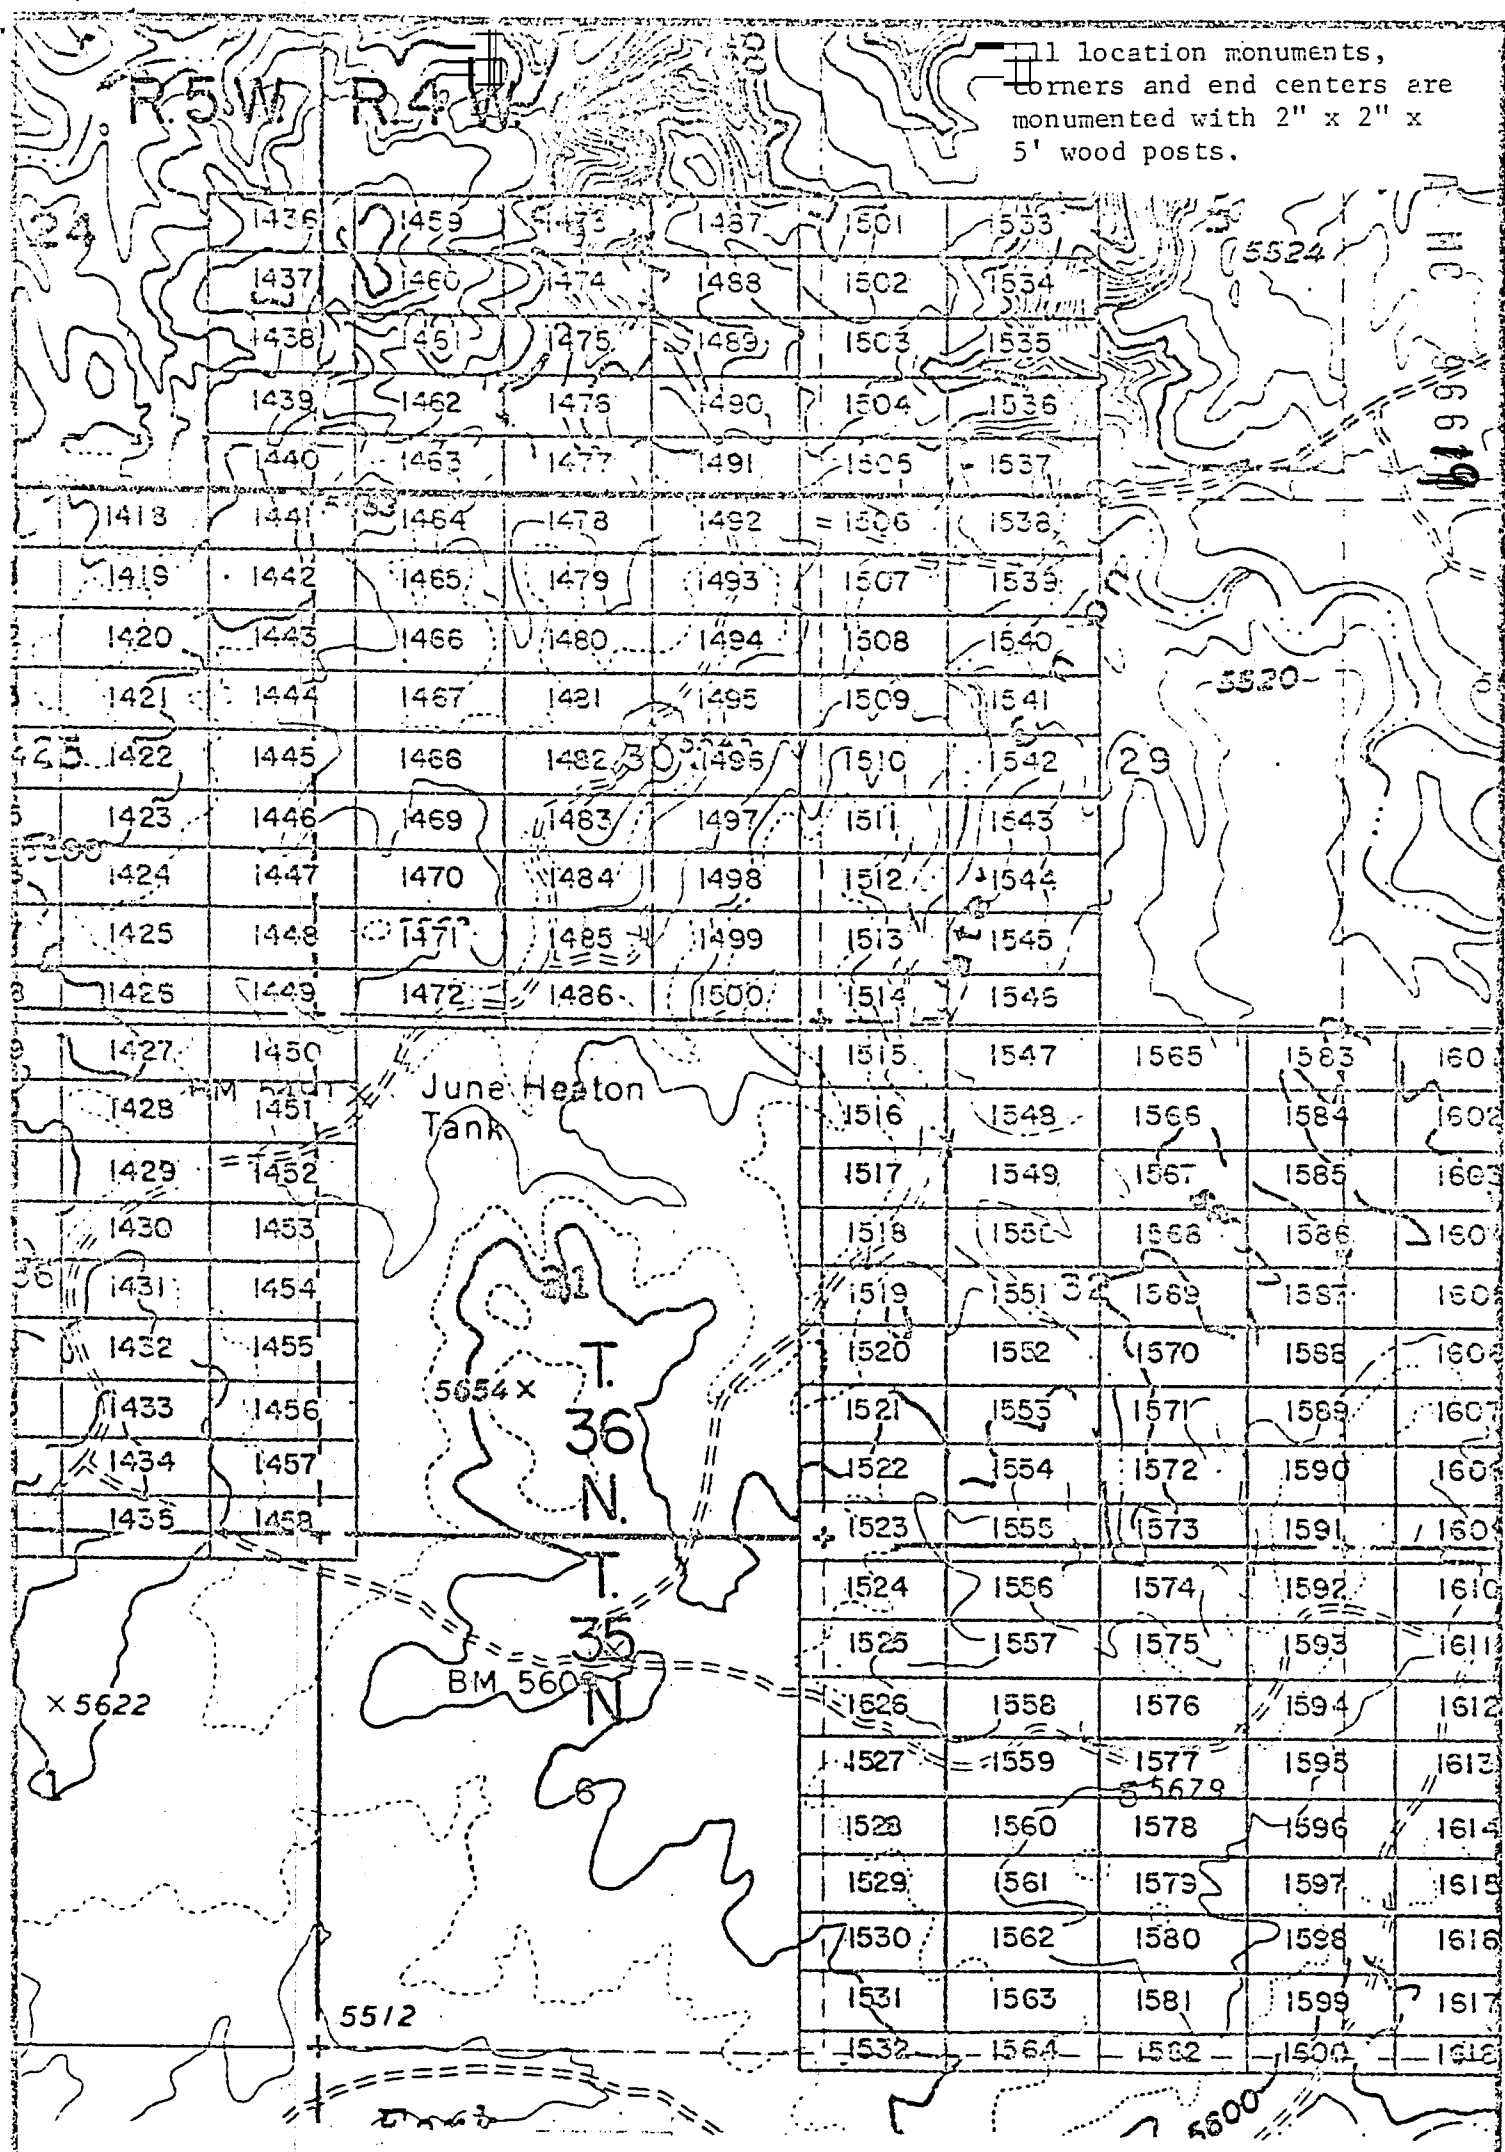 ll location monuments,
corners and end centers are
monumented with 2" x 2" x
5' wood posts.
R.5W. R.4W.
24 1436 1459 1473 1487 1501 1533
5524
1437 1460 1474 1488 1502 1534
1438 1461 1475 1489 1503 1535
1439 1462 1476 1490 1504 1536
1440 1463 1477 1491 1505 1537
1418 1441 1464 1478 1492 1506 1538
1419 1442 1465 1479 1493 1507 1539
1420 1443 1466 1480 1494 1508 1540
1421 1444 1467 1481 1495 1509 1541 5520
1422 1445 1468 1482 30 1496 1510 1542 29
1423 1446 1469 1483 1497 1511 1543
1424 1447 1470 1484 1498 1512 1544
1425 1448 1471 1485 1499 1513 1545
1426 1449 1472 1486 1500 1514 1546
1427 1450 1515 1547 1565 1583 160
June Heaton
Tank
1428 1451 1516 1548 1566 1584 1602
1429 1452 1517 1549 1567 1585 1603
1430 1453 1518 1550 1568 1586 160
36 1431 1454 1519 1551 32 1569 1587 160
1432 1455 1520 1552 1570 1588 160
5654 X
T.
36
N.
1433 1456 1521 1553 1571 1589 160
1434 1457 1522 1554 1572 1590 160
1435 1458 1523 1555 1573 1591 160
T.
35
N
1524 1556 1574 1592 1610
1525 1557 1575 1593 1611
BM 560
X 5622
1526 1558 1576 1594 1612
1527 1559 1577 1595 1613
1 6 5 5679
1528 1560 1578 1596 1614
1529 1561 1579 1597 1615
1530 1562 1580 1598 1616
1531 1563 1581 1599 1617
5512
1532 1564 1582 1600 1618
5600